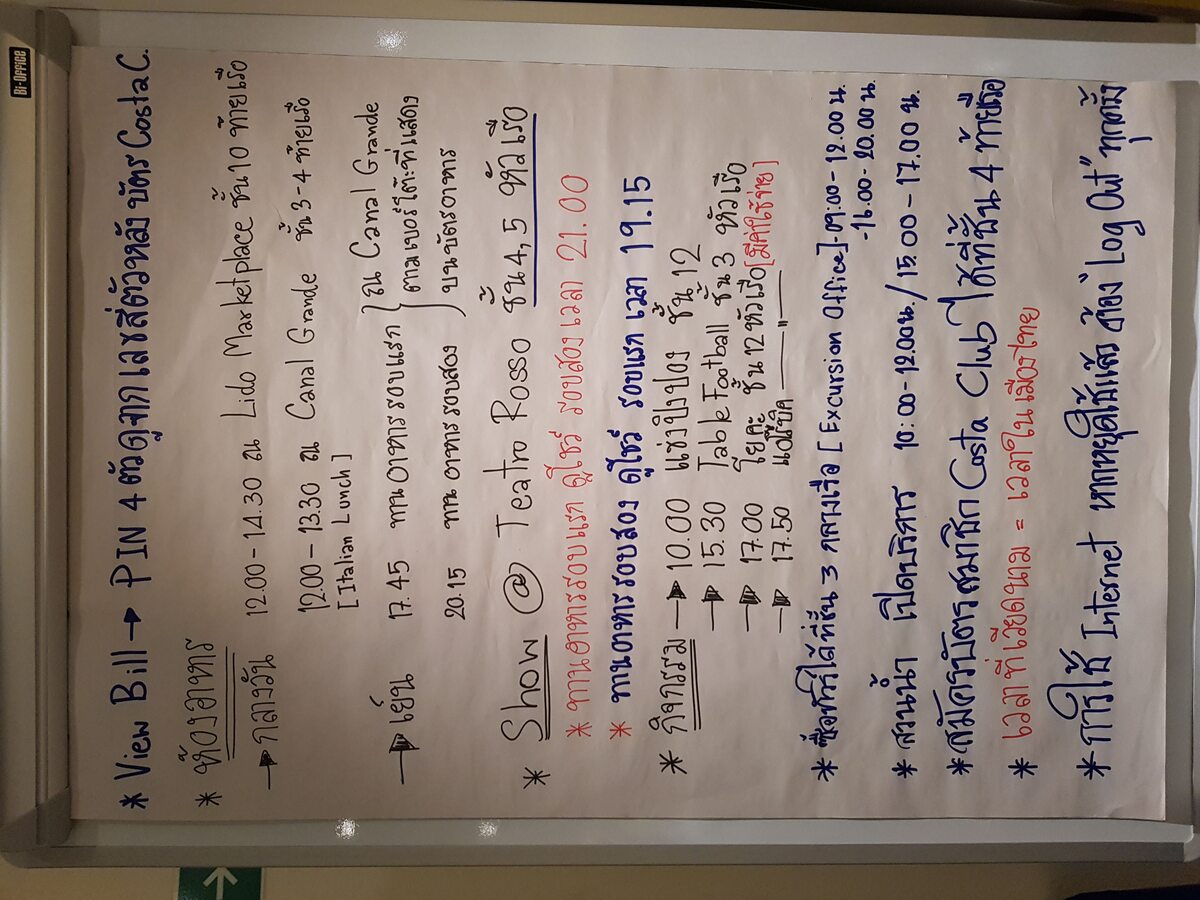 Bi-Office
* View Bill → PIN 4 ตัวดูจาก เลขสี่ตัวหลัง บัตร Costa C.
* ห้องอาหาร
→ กลางวัน 12.00 - 14.30 ณ Lido Marketplace ชั้น 10 ท้ายเรือ
12.00 - 13.30 ณ Canal Grande ชั้น 3-4 ท้ายเรือ
[Italian Lunch]
→ เย็น 17.45 ทานอาหารรอบแรก
20.15 ทานอาหารรอบสอง
ณ Canal Grande
ตามเบอร์โต๊ะที่แสดง
บนบัตรอาหาร
* Show @ Teatro Rosso ชั้น 4, 5 หัวเรือ
* ทานอาหารรอบแรก ดูโชว์ รอบสอง เวลา 21.00
* ทานอาหารรอบสอง ดูโชว์ รอบแรก เวลา 19.15
* กิจกรรม → 10.00 แข่งปิงปอง ชั้น 12
→ 15.30 Table Football ชั้น 3 หัวเรือ
→ 17.00 โยคะ ชั้น 12 หัวเรือ [มีค่าใช้จ่าย]
→ 17.50 แอโรบิค — " —
* ซื้อทัวร์ได้ที่ชั้น 3 กลางเรือ [Excursion Office] - 09:00 - 12.00 น.
- 16.00 - 20.00 น.
* สวนน้ำ เปิดบริการ 10:00 - 12.00 น. / 15.00 - 17.00 น.
* สมัครบัตรสมาชิก Costa Club ได้ที่ชั้น 4 ท้ายเรือ
* เวลาที่เวียดนาม = เวลาในเมืองไทย
* การใช้ Internet หากหยุดใช้แล้ว ต้อง "Log Out" ทุกครั้ง